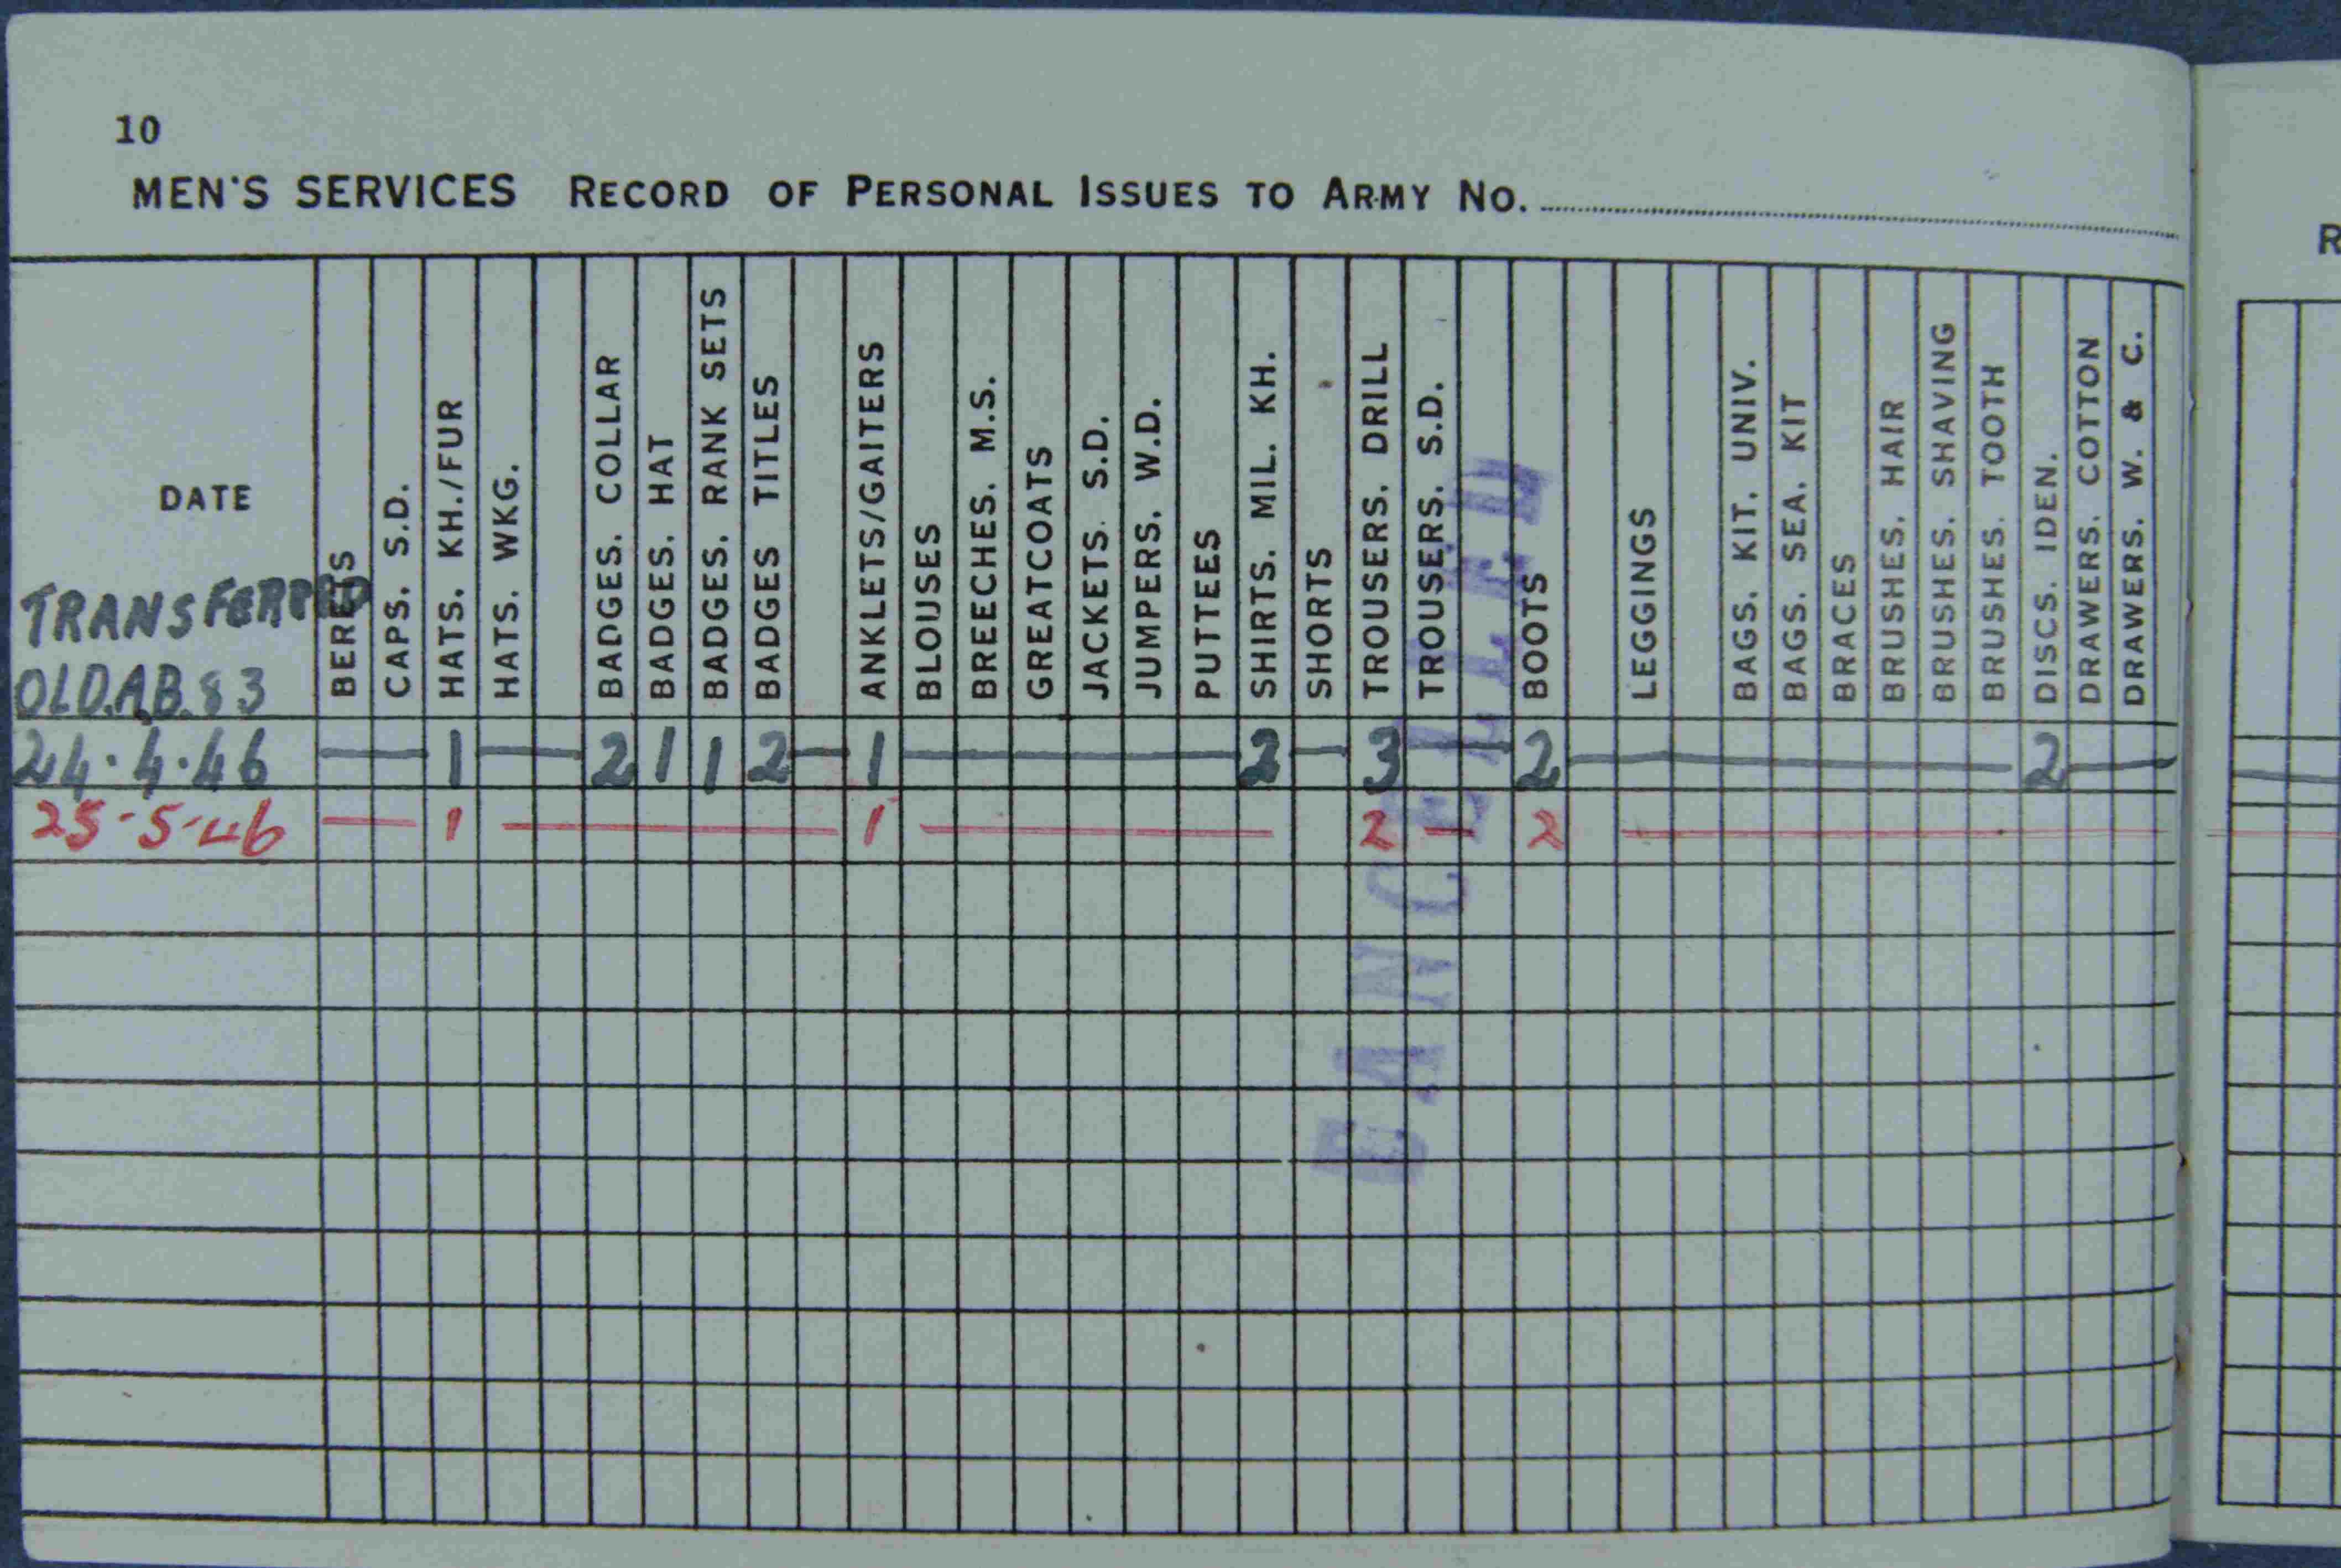 10
MEN'S SERVICES RECORD OF PERSONAL ISSUES TO ARMY NO.
DATE
BERETS
CAPS. S.D.
HATS. KH./FUR
HATS. WKG.
BADGES. COLLAR
BADGES. HAT
BADGES. RANK SETS
BADGES TITLES
ANKLETS/GAITERS
BLOUSES
BREECHES. M.S.
GREATCOATS
JACKETS. S.D.
JUMPERS. W.D.
PUTTEES
SHIRTS. MIL. KH.
SHORTS
TROUSERS. DRILL
TROUSERS. S.D.
BOOTS
LEGGINGS
BAGS. KIT. UNIV.
BAGS. SEA. KIT
BRACES
BRUSHES. HAIR
BRUSHES. SHAVING
BRUSHES. TOOTH
DISCS. IDEN.
DRAWERS. COTTON
DRAWERS. W. & C.
TRANSFERRED
OLD.A.B.83
24.4.46 — 1 — 2 1 1 2 — 1 — 2 — 3 — 2 — 2 —
25-5-46 — 1 — 1 — 2 — 2 —
CANCELLED
R